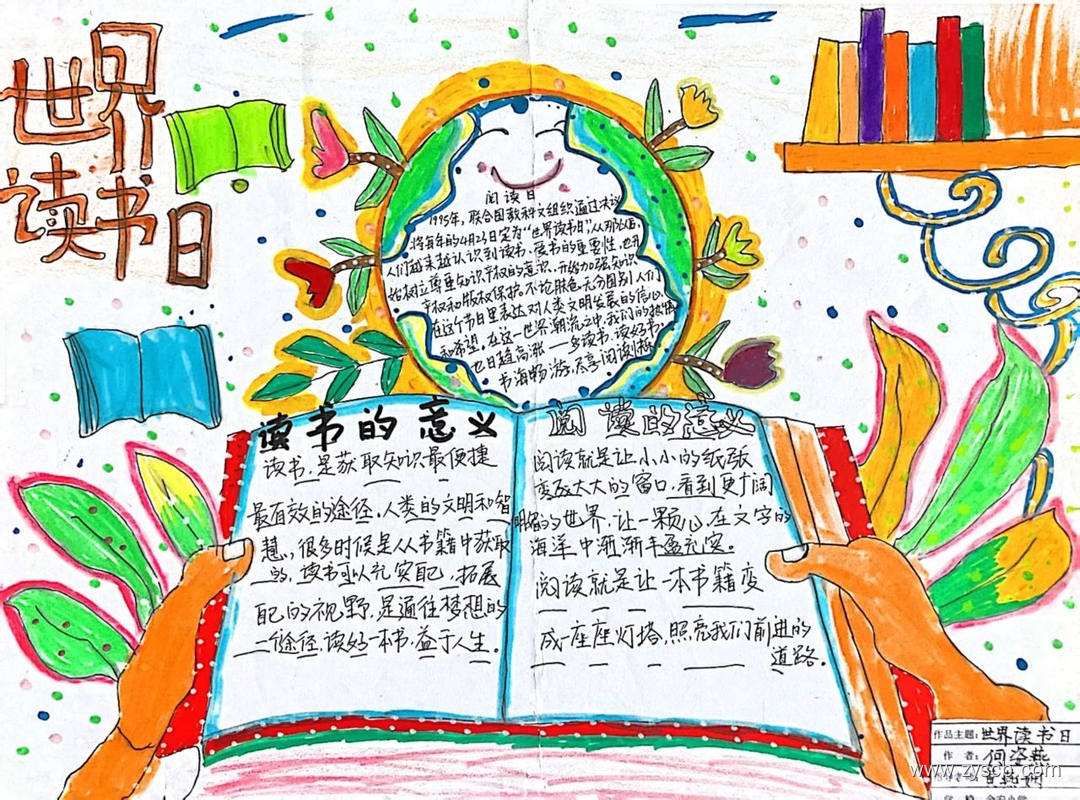 世界
读书日
阅读日
1995年，联合国教科文组织通过决议
将每年的4月23日定为“世界读书日”，从那以后，
人们越来越认识到读书、爱书的重要性，也开
始树立尊重知识平权的意识，开始加强知识
产权和版权保护。不论肤色，无分国别，人们
在这个节日里表达对人类文明发展的信心
和希望。在这一世界潮流之中，我们的热情
也日趋高涨——多读书，读好书，
书海畅游，尽享阅读
读书的意义
读书，是获取知识最便捷
最有效的途径，人类的文明和智
慧，很多时候是从书籍中获取
的，读书可以充实自己，拓展
自己的视野，是通往梦想的
一途径，读好一本书，益于人生。
阅读的意义
阅读就是让小小的纸张
变成大大的窗口，看到更广阔
的世界，让一颗心，在文字的
海洋中渐渐丰盈充实。
阅读就是让一本书籍变
成一座座灯塔，照亮我们前进的
道路。
作品主题：世界读书日
作者：何姿燕
www.zyscb.com